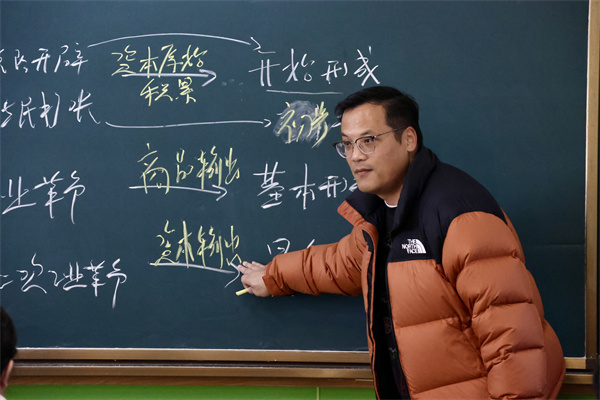 开辟 资本原始 开始形成
积累
殖民扩张 初步
业革命 商品输出 基本形
二次工业革命 资本输出
THE
NORTH
FACE